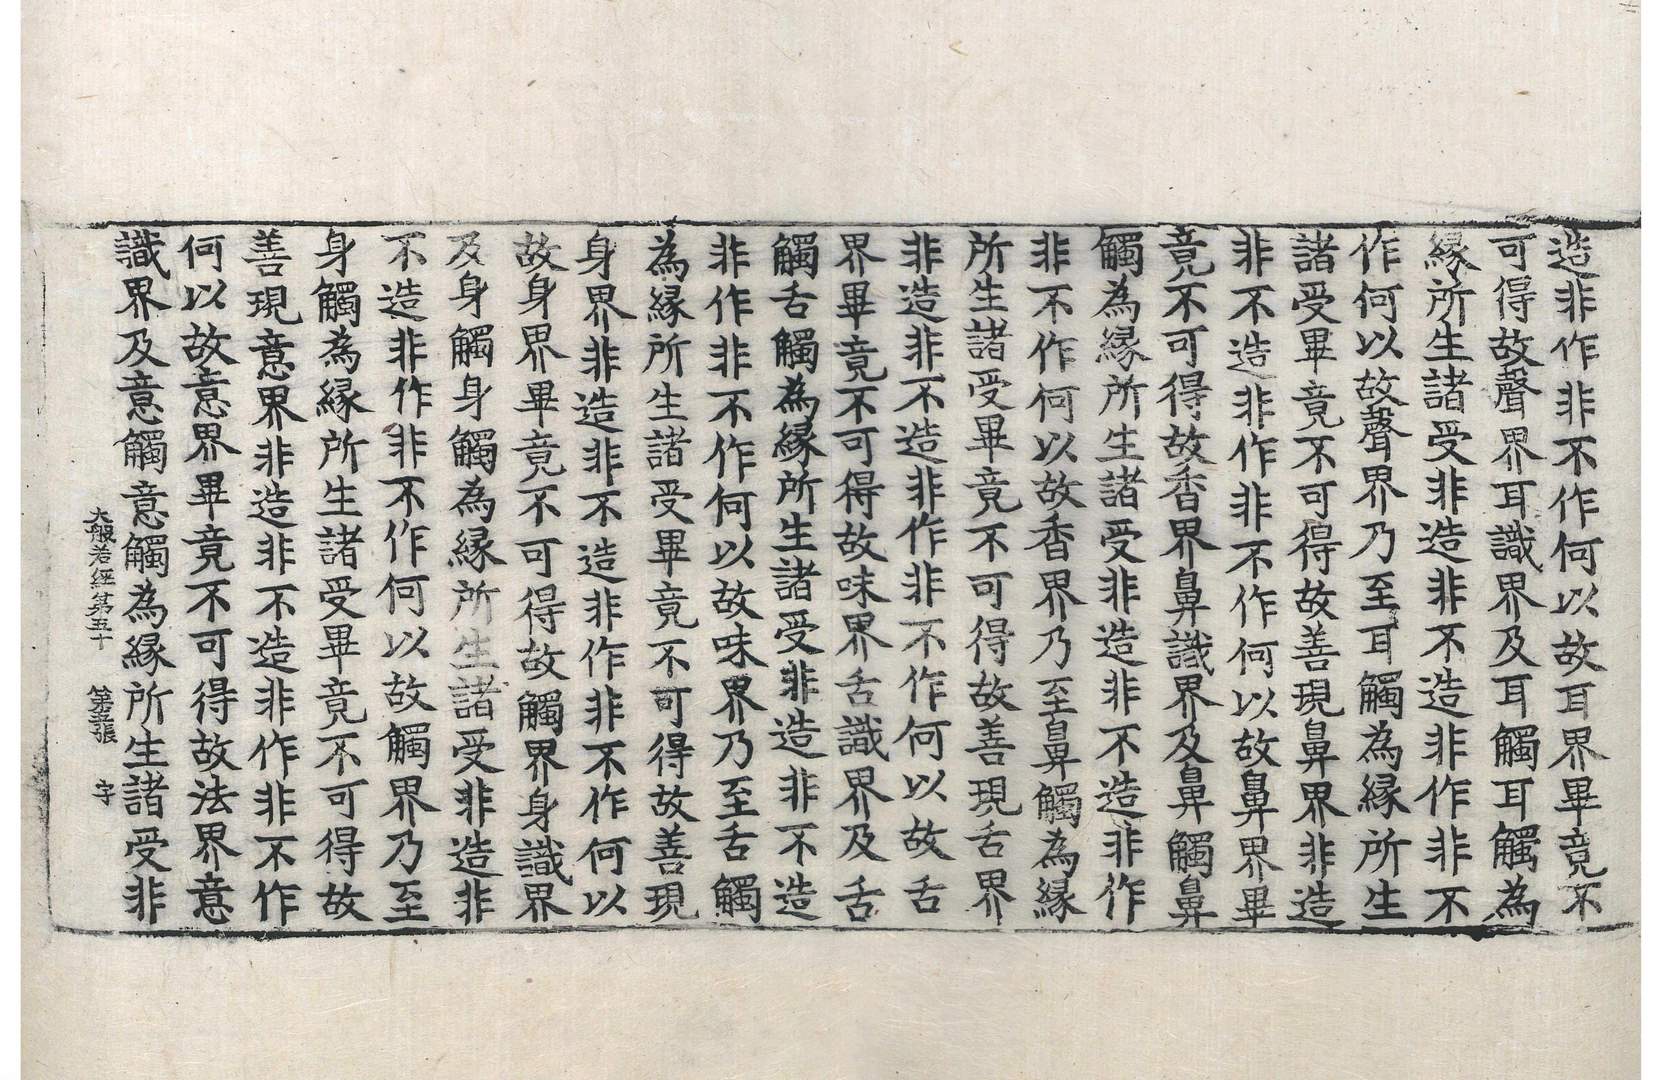 造非作非不作何以故耳界畢竟不
可得故聲界耳識界及耳觸耳觸為
縁所生諸受非造非不造非作非不
作何以故聲界乃至耳觸為縁所生
諸受畢竟不可得故善現鼻界非造
非不造非作非不作何以故鼻界畢
竟不可得故香界鼻識界及鼻觸鼻
觸為縁所生諸受非造非不造非作
非不作何以故香界乃至鼻觸為縁
所生諸受畢竟不可得故善現舌界
非造非不造非作非不作何以故舌
界畢竟不可得故味界舌識界及舌
觸舌觸為縁所生諸受非造非不造
非作非不作何以故味界乃至舌觸
為縁所生諸受畢竟不可得故善現
身界非造非不造非作非不作何以
故身界畢竟不可得故觸界身識界
及身觸身觸為縁所生諸受非造非
不造非作非不作何以故觸界乃至
身觸為縁所生諸受畢竟不可得故
善現意界非造非不造非作非不作
何以故意界畢竟不可得故法界意
識界及意觸意觸為縁所生諸受非
大般若經第五十 第張 字